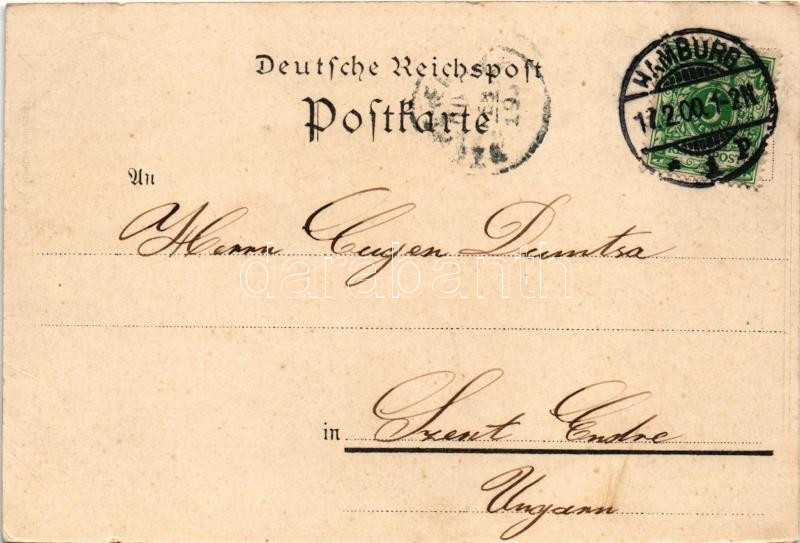 Deutsche Reichspost
Postkarte
HAMBURG
17.2.00. 1-2N.
* 1 P.
5
An
Herrn Eugen Dumtsa
darabanth
in Szent Endre
Ungarn